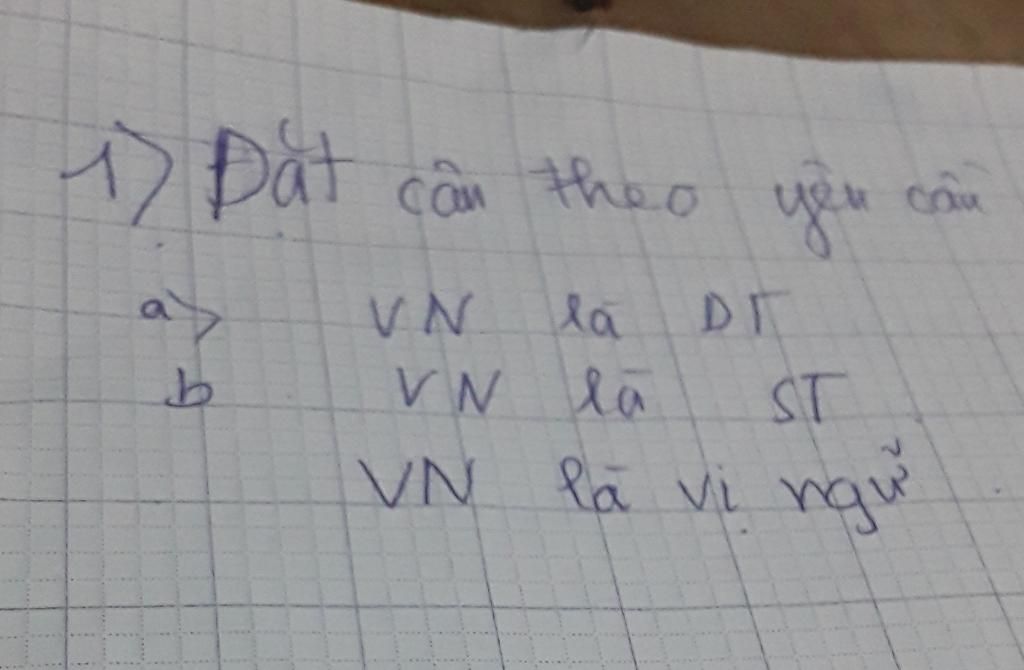 1) Đặt câu theo yêu cầu
a) VN là DT
b VN là ST
VN là vị ngữ